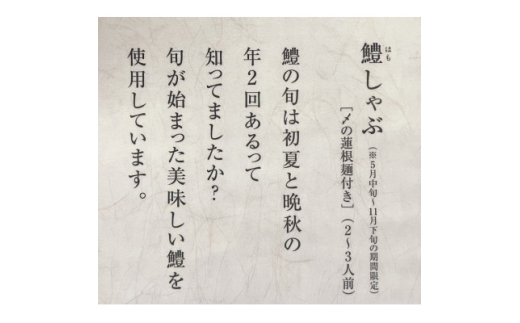 鱧しゃぶ（※5月中旬～11月下旬の期間限定）
はも
［〆の蓮根麺付き］（2～3人前）
鱧の旬は初夏と晩秋の
年2回あるって
知ってましたか？
旬が始まった美味しい鱧を
使用しています。